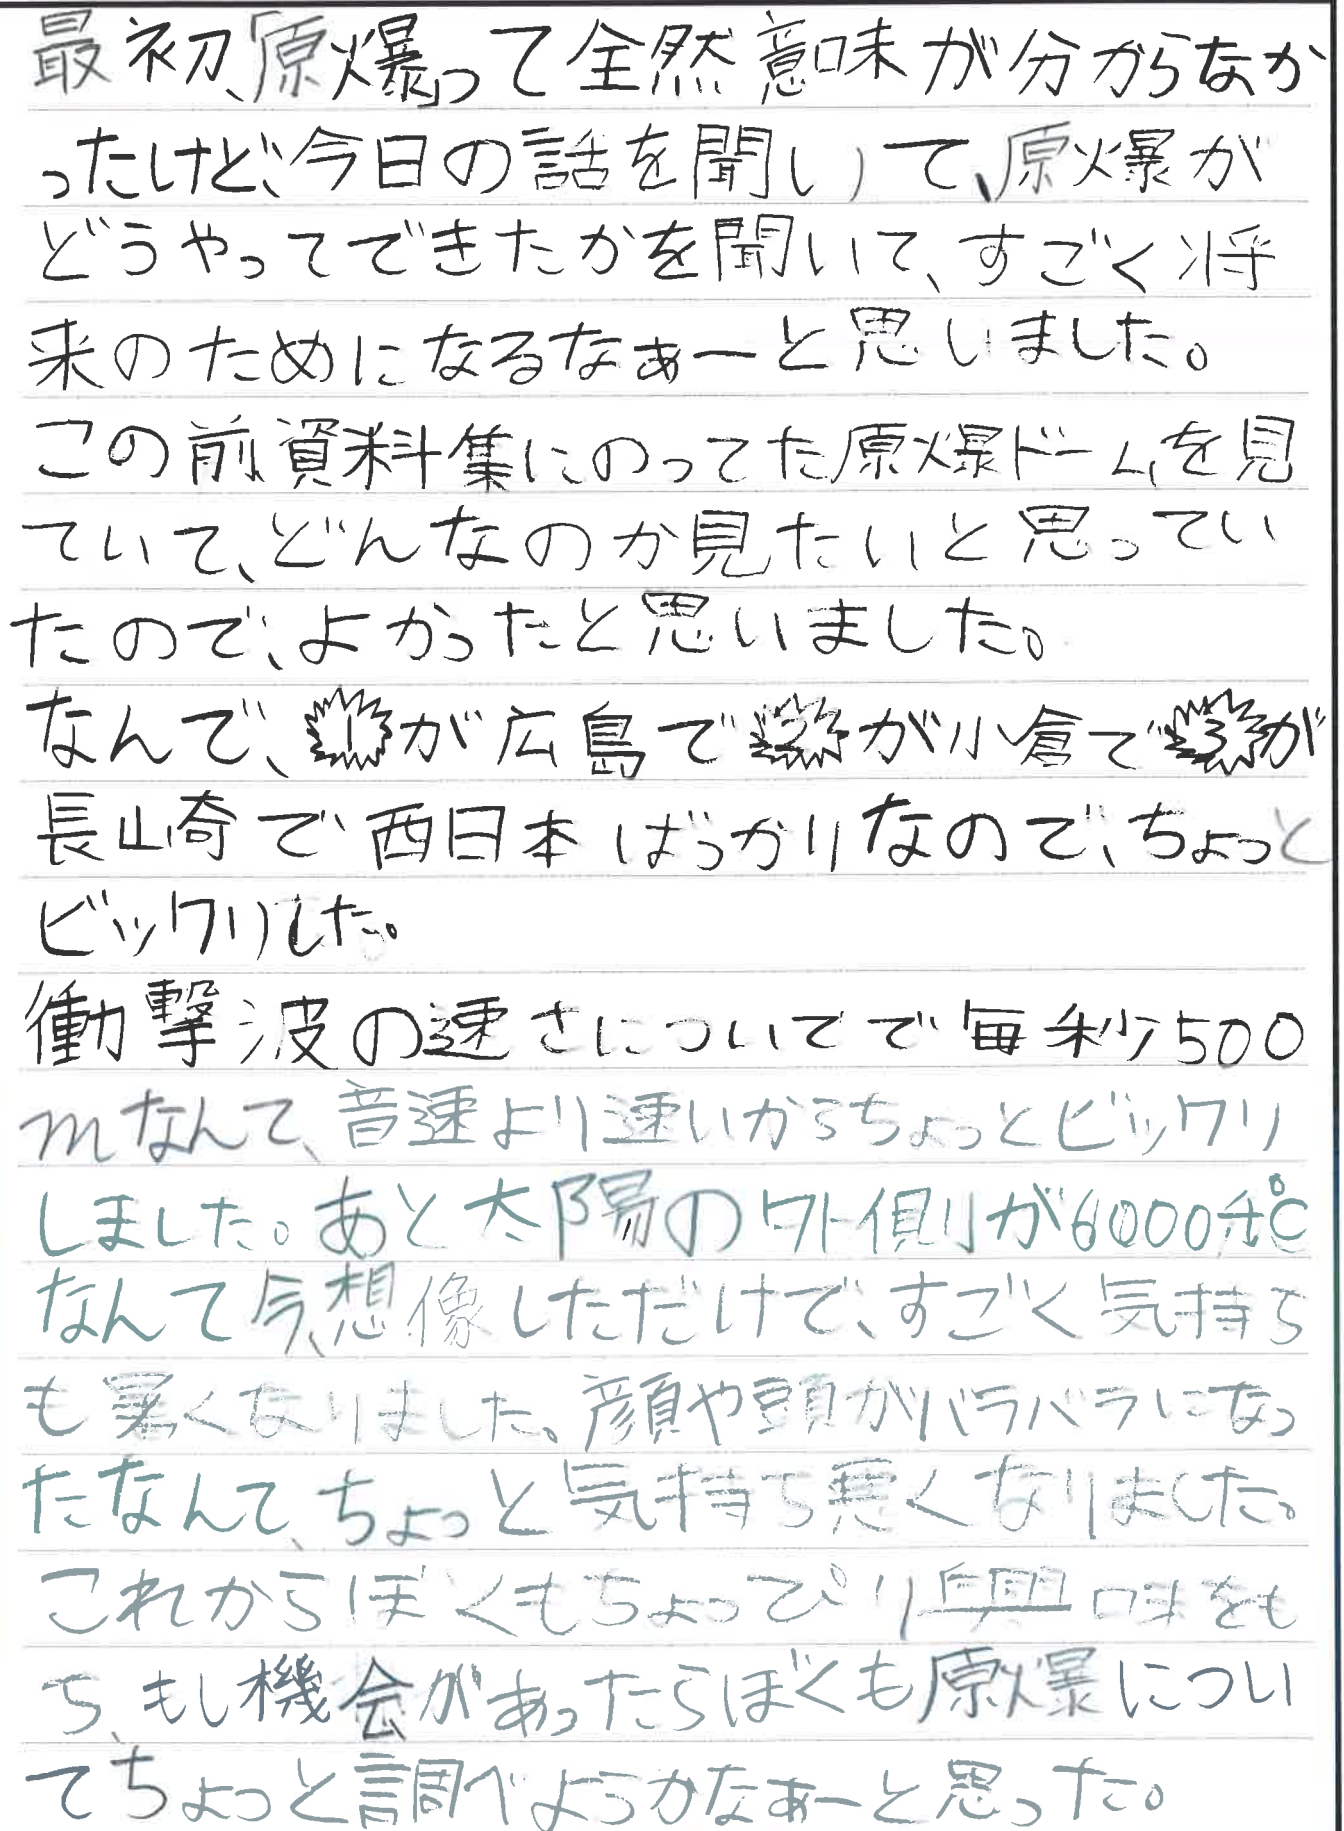 最初、「原爆」って全然意味が分からなか
ったけど、今日の話を聞いて、原爆が
どうやってできたかを聞いて、すごく将
来のためになるなぁーと思いました。
この前資料集にのってた原爆ドームを見
ていて、どんなのか見たいと思ってい
たので、よかったと思いました。
なんで、1が広島で2が小倉で3が
長崎で西日本ばっかりなので、ちょっと
ビックリした。
衝撃波の速さについてで毎秒500
mなんて、音速より速いからちょっとビックリ
しました。あと太陽の外側が6000℃
なんて今、想像しただけで、すごく気持ち
も悪くなりました。顔や頭がバラバラになっ
たなんて、ちょっと気持ち悪くなりました。
これからぼくもちょっぴり興味をも
ち、もし機会があったらぼくも原爆につい
てちょっと調べようかなぁーと思った。